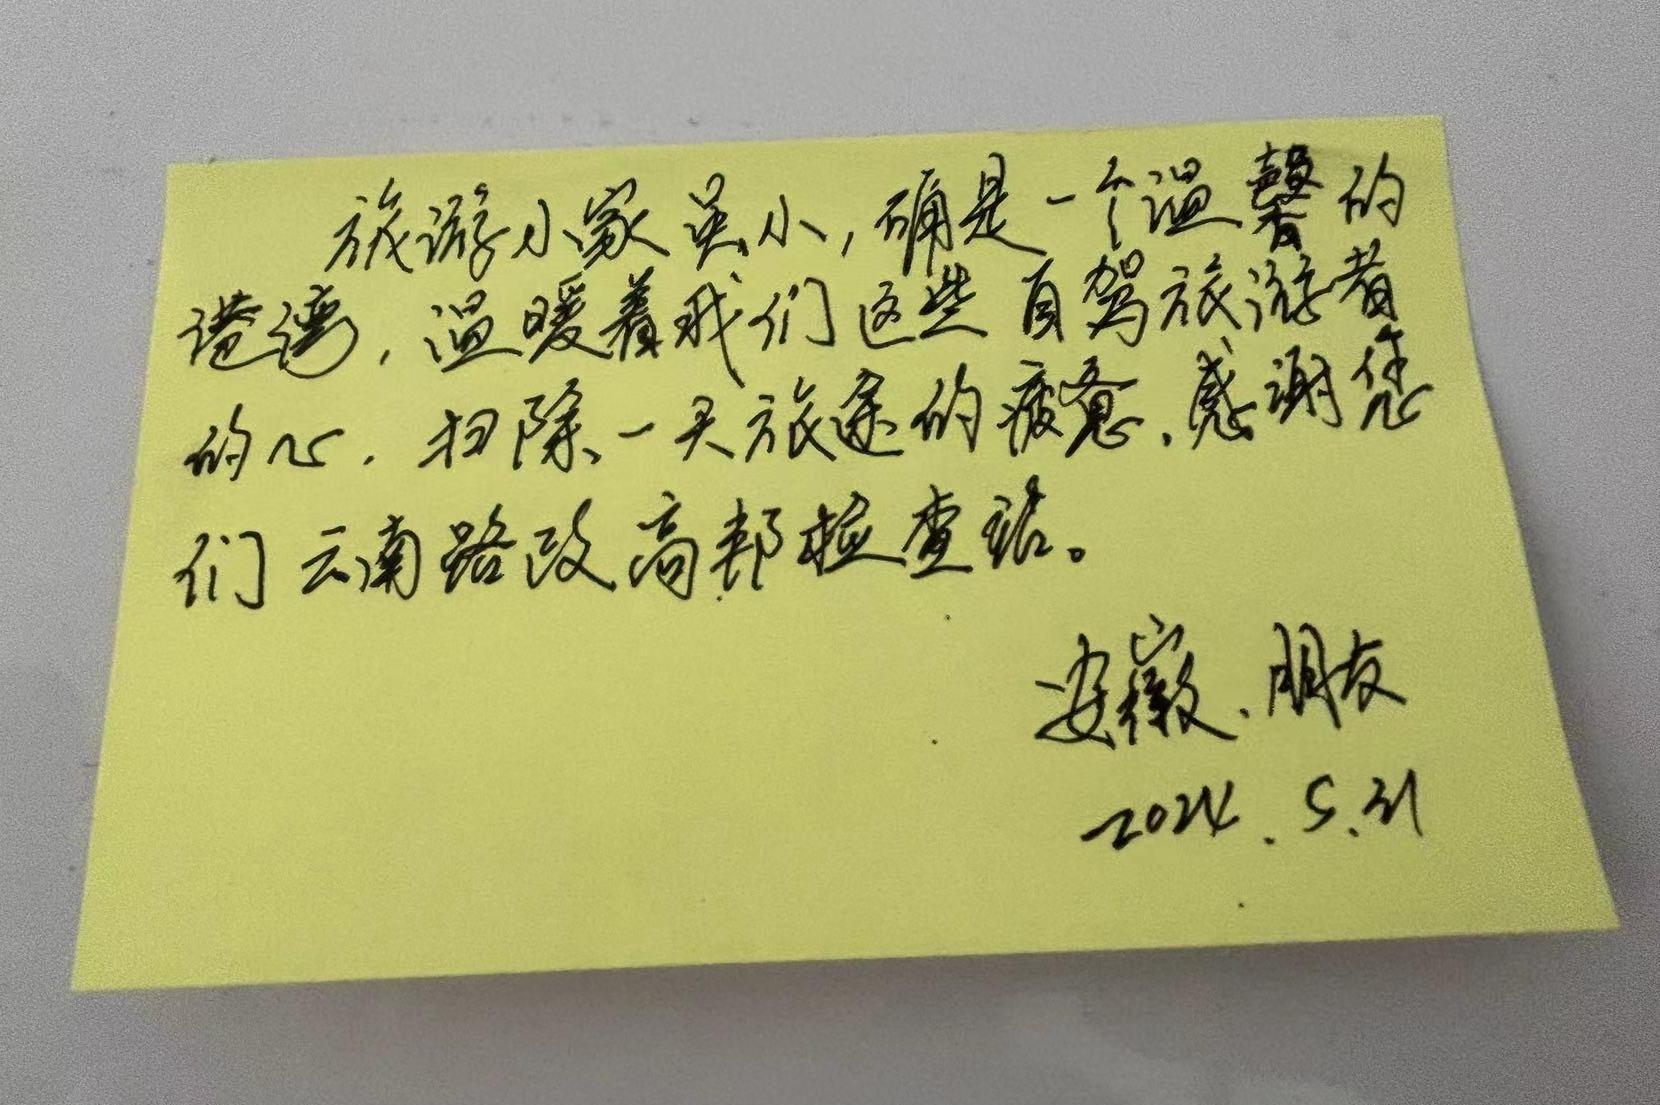 旅游小家虽小，确是一个温馨的
港湾，温暖着我们这些自驾旅游者
的心，扫除一天旅途的疲惫，感谢您
们云南路政高邦检查站。
安徽、朋友
2024.5.31